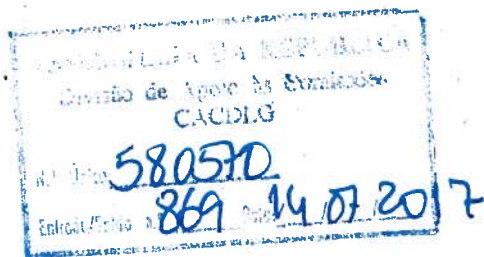 ASSEMBLEIA DA REPÚBLICA
Divisão de Apoio às Comissões
CACDLG
N.º Único 580570
Entrada/Saída n.º 869 Data 14 07 2017